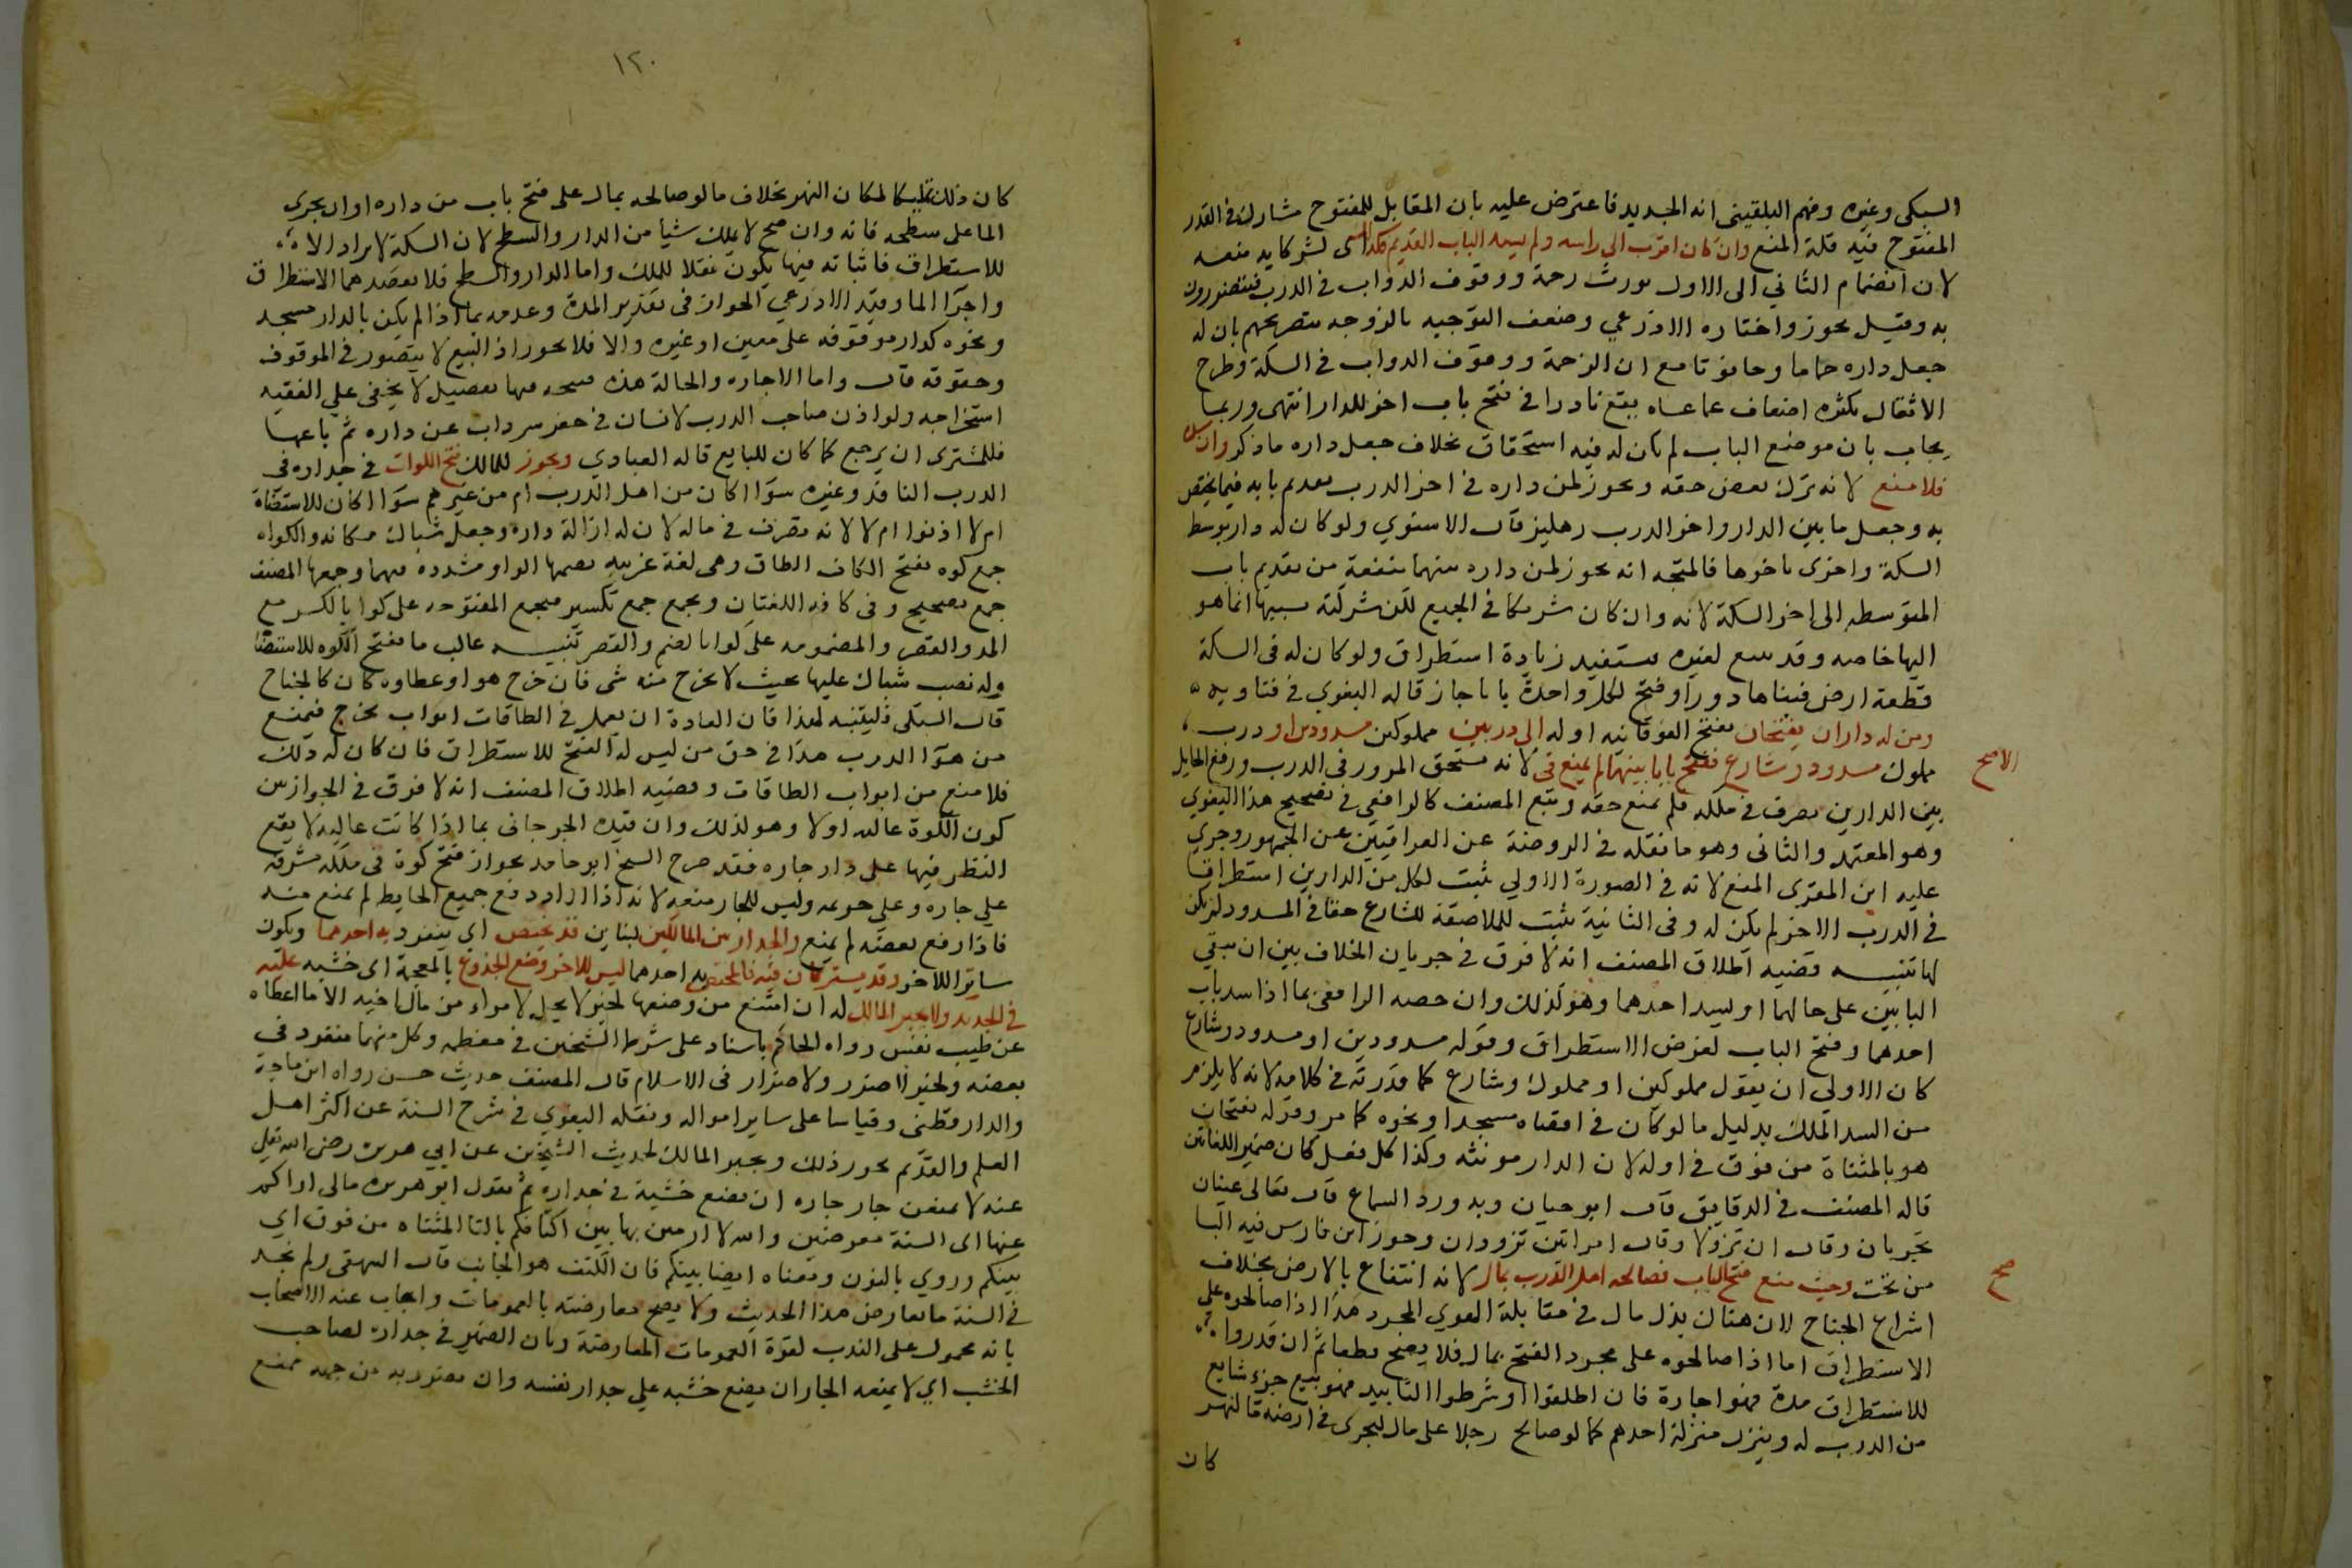 السبكى وغيره وفهم البلقيني انه الجديد فاعترض عليه بان المقابل للمفتوح مشارك فى القدر
المفتوح فيه فله المنع وان كان اقرب الى راسه ولم يسد الباب القديم فكذا لشركايه منعه
لان انضمام الثاني الى الاول يورث زحمة ووقوف الدواب فى الدرب فيتضررون
به وقيل يجوز واختاره الاذرعي وضعف التوجيه بالزوجه بتصريحهم بان له
جعل داره حماما وحانوتا مع ان الزحمة ووقوف الدواب فى السكة وطرح
الاثقال يكثر اضعاف ما عساه يقع نادرا فى فتح باب اخر للدار انتهى وربما
يجاب بان موضع الباب لم يكن له فيه استحقاق بخلاف جعل داره ما ذكر وان
فلا منع لانه ترك بعض حقه ويجوز لمن داره فى اخر الدرب تقديم بابه فيما يختص
به وجعل ما بين الدار واخر الدرب دهليز قال الاسنوي ولو كان له دار بوسط
السكة واخرى باخرها فالمتجه انه يجوز لمن داره بينهما منعه من تقديم باب
المتوسطه الى اخر السكة لانه وان كان شريكا فى الجميع لكن شركته بسببها انما هو
اليها خاصه وقد يبيع لغيره فيستفيد زيادة استطراق ولو كان له فى السكة
قطعة ارض فبناها دورا وفتح لكل واحدة بابا جاز قاله البغوي فى فتاويه
ومن له داران يفتحان بفتح الفوقانيه اوله الى دربين مملوكين مسدودين او درب
مملوك مسدود وشارع ففتح بابا بينهما لم يمنع فى لانه مستحق المرور فى الدرب ورفع الحايل
الاصح
بين الدارين تصرف فى ملكه فلم يمنع حقه وتبع المصنف كالرافعي فى تصحيح هذا البغوي
وهو المعتمد والثانى وهو ما نقله فى الروضة عن العراقيين عن الجمهور وجري
عليه ابن المقري المنع لانه فى الصورة الاولي يثبت لكل من الدارين استطراقا
فى الدرب الاخر لم يكن له وفى الثانية يثبت للملاصقة للشارع حقا فى المسدود لم يكن
لها تنبيه قضيه اطلاق المصنف انه لا فرق فى جريان الخلاف بين ان يبقي
البابين على حالهما او يسد احدهما وهو كذلك وان خصه الرافعى بما اذا سد باب
احدهما وفتح الباب لغرض الاستطراق وقوله مسدودين او مسدود وشارع
كان الاولي ان يقول مملوكين او مملوك وشارع كما قدرته فى كلامه لانه لا يلزم
من السد الملك بدليل ما لو كان فى اقصاه مسجدا ونحوه كما مر وقوله تفتحان
هو بالمثناة من فوق فى اوله لان الدار مونثه وكذا كل فعل كان ضمير اللغايتين
قاله المصنف فى الدقايق قال ابو حيان وبه ورد السماع قال تعالى عينان
تجريان وقال ان تزولا وقال امراتين تذودان وجوز ابن فارس فيه اليا
من تحت وحيث منع فتح الباب فصالحه اهل الدرب بمال لانه انتفاع بالارض بخلاف
صح
اشراع الجناح لان هناك بذل مال فى مقابلة الهوي المجرد هذا اذا صالحوه على
الاستطراق اما اذا صالحوه على مجرد الفتح بمال فلا يصح قطعا ثم ان قدروا
للاستطراق مدة فهو اجارة فان اطلقوا او شرطوا التابيد فهو بيع جزء شايع
من الدرب له وينزل منزلة احدهم كما لو صالح رجلا على مال ليجرى فى ارضه قالنهر
كان
١٢٠
كان ذلك تمليكا لمكان النهر بخلاف ما لو صالحه بمال على فتح باب من داره او ان يجرى
الما على سطحه فانه وان صح لا يملك شيا من الدار والسطح لان السكة لا تراد الا
للاستطراق فاثباته فيها يكون نقلا للملك واما الدار والسطح فلا يقصد بهما الاستطراق
واجرا الما وقيد الاذرعي الجواز فى تقدير المدة وعدمه بما اذا لم يكن بالدار مسجد
ونحوه كدار موقوفه على معين او غيره والا فلا يجوز اذ البيع لا يتصور فى الموقوف
وحقوقه قال واما الاجاره والحالة هذه فيتجه فيها تفصيل لا يخفى على الفقيه
استخراجه ولو اذن صاحب الدرب لانسان فى حفر سرداب تحت داره ثم باعها
فللمشترى ان يرجع كما كان للبايع قاله العبادي ويجوز للمالك فتح الكوات فى جداره فى
الدرب النافذ وغيره سوا اكان من اهل الدرب ام من غيرهم سوا اكان للاستضاة
ام لا اذنوا ام لا لانه تصرف فى ماله لان له ازالة داره وجعل شباك مكانه والكواه
جمع كوه بفتح الكاف الطاق وهى لغة غريبه بضمها الواو مشدده فيهما وجمعها المصنف
جمع تصحيح وفى كافه اللغتان ويجمع جمع تكسير فيجمع المفتوحه على كوا بالكسر مع
المد والقصر والمضمومه على كوا بالضم والقصر تنبيه غالب ما تفتح الكوه للاستضا
وله نصب شباك عليها بحيث لا يخرج منه شى فان خرج هو او غطاوه كان كالجناح
قال السبكى فليتنبه لهذا فان العادة ان يعمل فى الطاقات ابواب تخرج فيمنع
من هوا الدرب هذا فى حق من ليس له الفتح للاستطراق فان كان له ذلك
فلا منع من ابواب الطاقات وقضيه اطلاق المصنف انه لا فرق فى الجواز بين
كون الكوة عاليه او لا وهو لذلك وان قيده الجرجانى بما اذا كانت عاليه لا يقع
النظر فيها على دار جاره فقد صرح الشيخ ابو حامد بجواز فتح كوة فى ملكه مشرفه
علي جاره وعلي حريمه وليس للجار منعه لانه اذا اراد رفع جميع الحايط لم يمنع منه
فاذا رفع بعضه لم يمنع والجدار بين المالكين لبناين قد يختص اى ينفرد به احدهما ويكون
ساتر اللاخر وقد يشتركان فيه فالمختص به احدهما ليس للاخر وضع الجذوع بالمعجمة اى خشبه عليه
فى الجديد ولا يجبر المالك له ان امتنع من وضعها لخبر لا يحل لامراء من مال اخيه الا ما اعطاه
عن طيب نفس رواه الحاكم باسناد على شرط الشيخين فى معظمه وكل منهما منفرد فى
بعضه ولخبر لا ضرر ولا ضرار فى الاسلام قال المصنف حديث حسن رواه ابن ماجة
والدار قطنى وقياسا على ساير امواله ونقله البغوي فى شرح السنة عن اكثر اهل
العلم والقديم يجوز ذلك ويجبر المالك لحديث الشيخين عن ابي هريرة رضى الله تعالى
عنه لا يمنعن جار جاره ان يضع خشبة فى جداره ثم يقول ابو هريره مالى اراكم
عنها اى السنة معرضين والله لارمين بها بين اكتافكم بالتا المثناه من فوق اي
بينكم وروي بالنون ومعناه ايضا بينكم فان الكنف هو الجانب قال البيهقى ولم نجد
فى السنة ما يعارض هذا الحديث ولا يصح معارضته بالعمومات واجاب عنه الاصحاب
بانه محمول على الندب لقوة العمومات المعارضة وبان الضمير فى جداره لصاحب
الخشب اي لا يمنعه الجار ان يضع خشبه علي جدار نفسه وان تضرر به من جهه ممنع